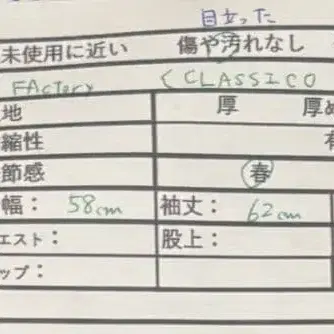 目立った
未使用に近い 傷や汚れなし
FActory < CLASSICO
地 厚 厚め
縮性 有
節感 春
幅： 58cm 袖丈： 62cm
エスト： 股上：
ップ：